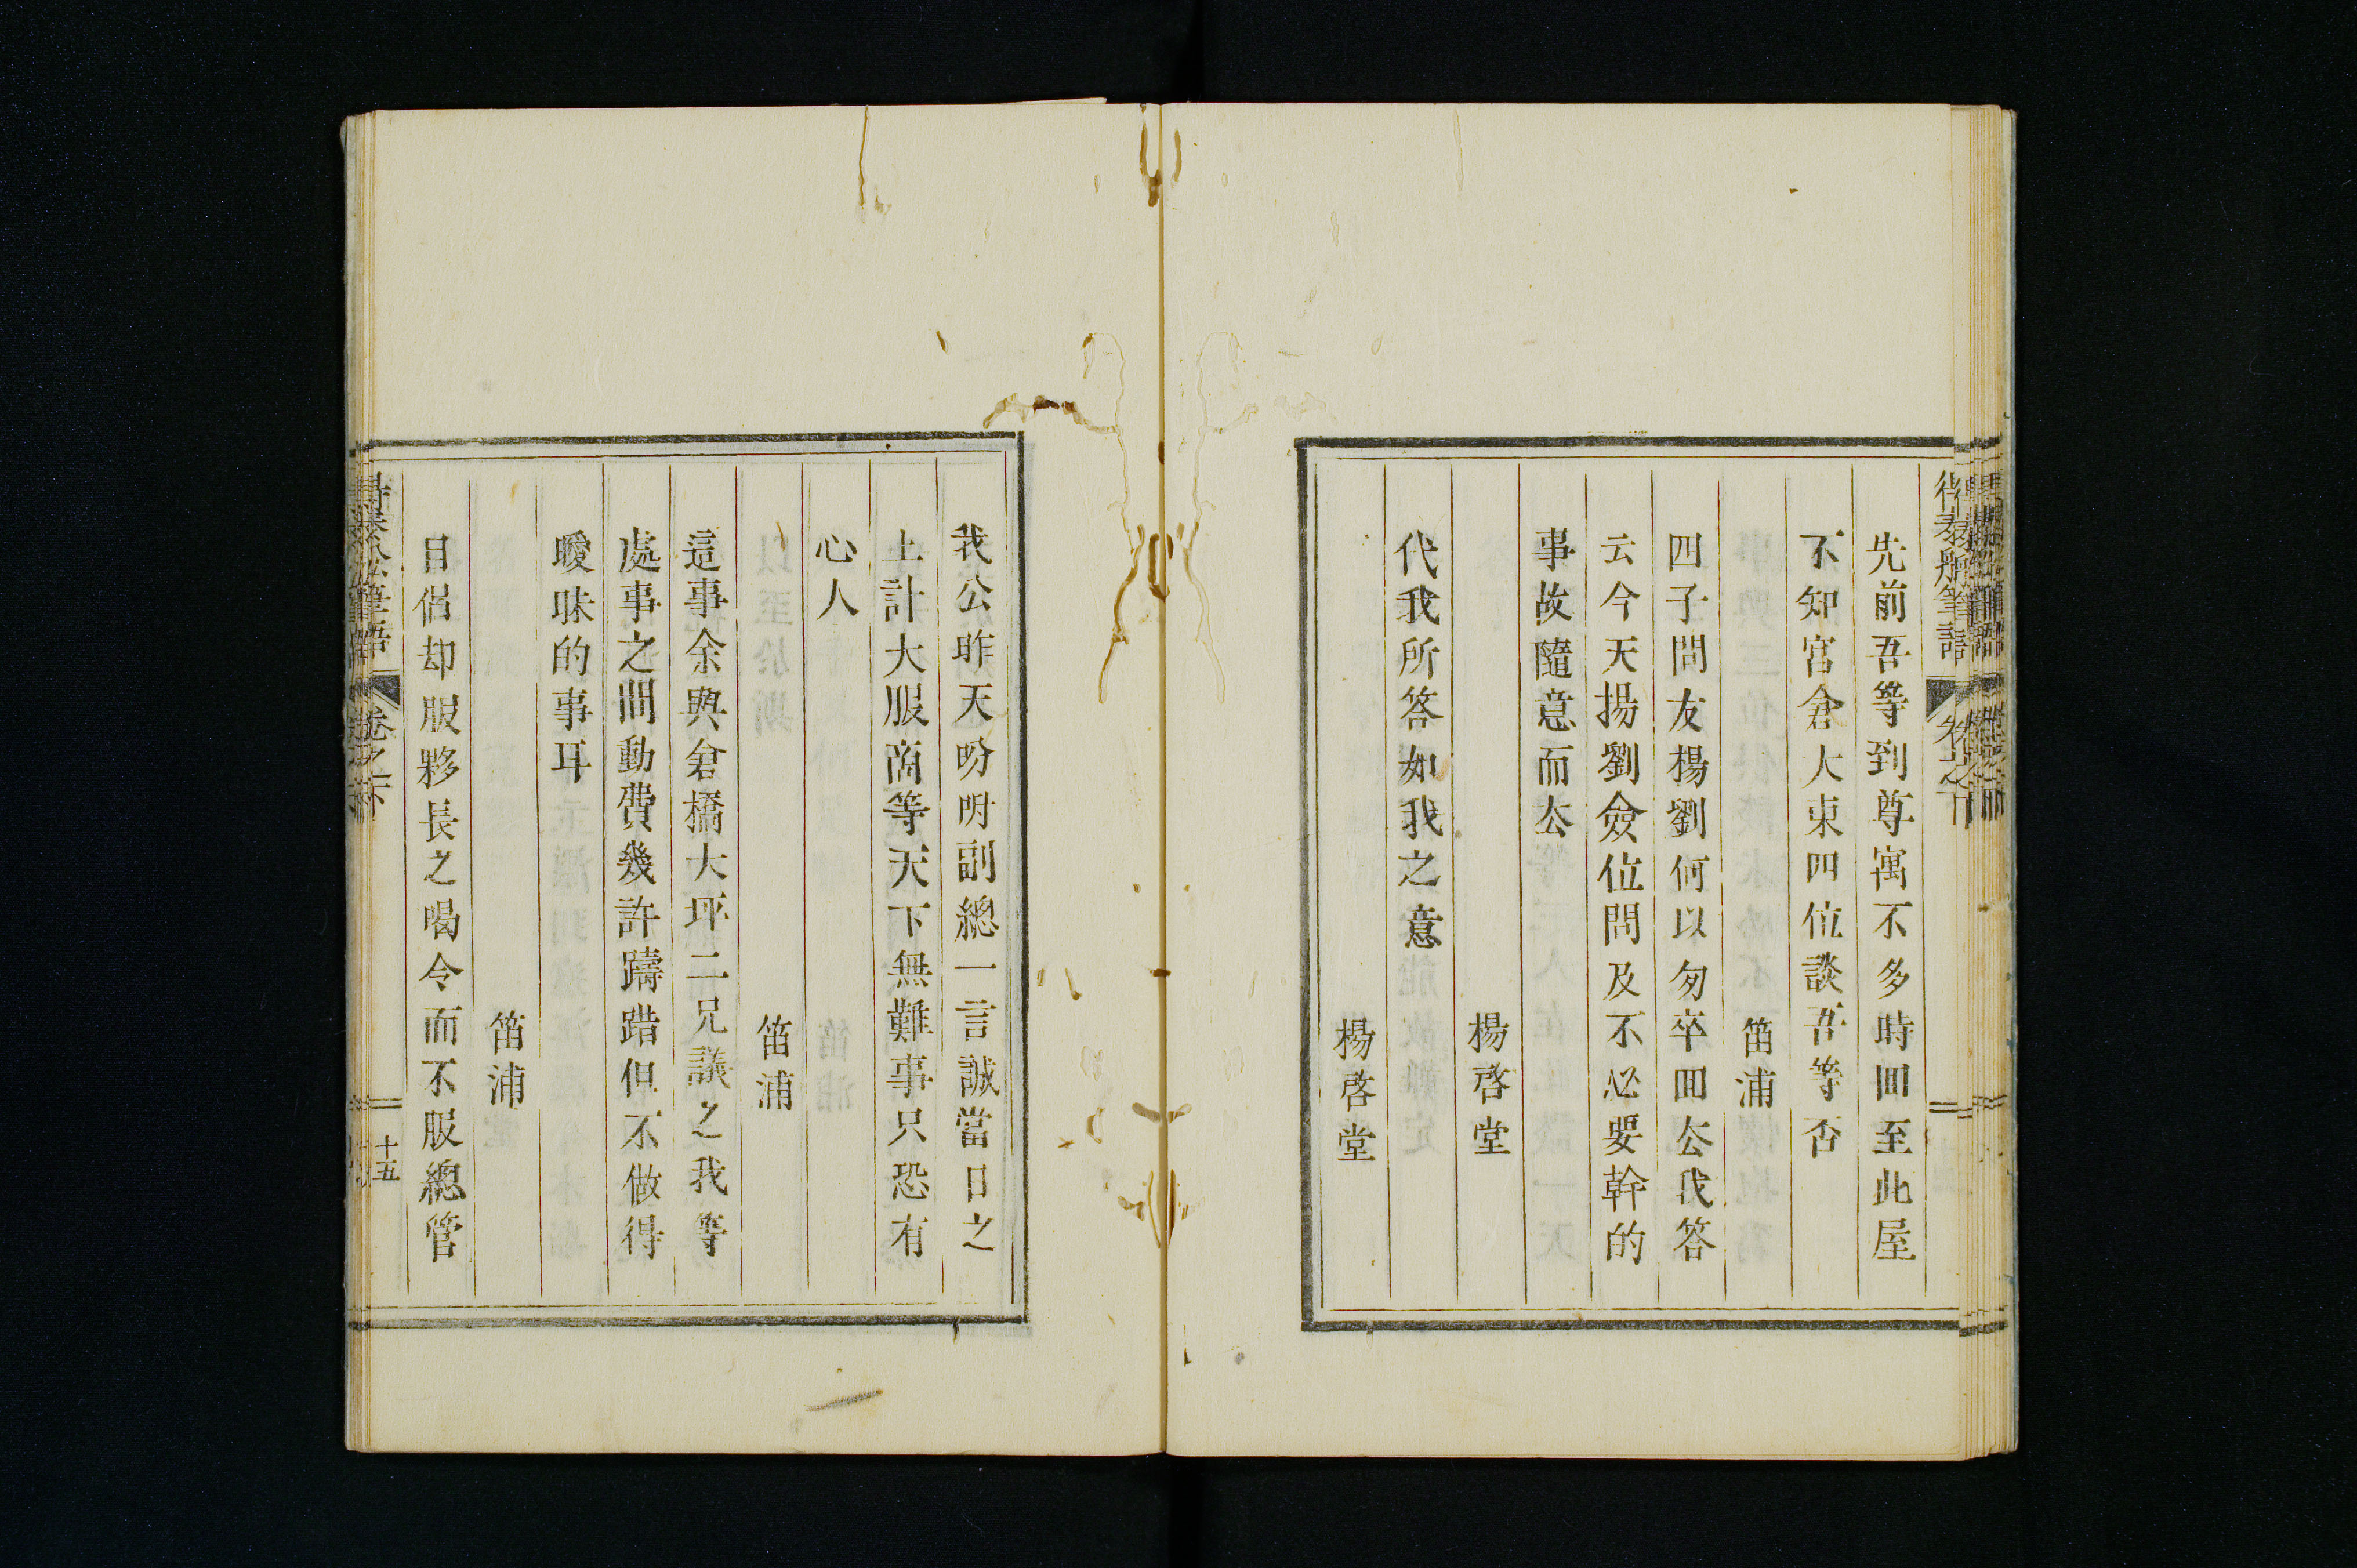 先前吾等到尊寓不多時囬至此屋
不知宮倉大東四位談吾等否
笛浦
四子問友楊劉何以匆卒囬厺我答
云今天揚劉僉位問及不必要幹的
事故隨意而厺
楊啓堂
代我所答如我之意
楊啓堂
我公昨天吩咐副總一言誠當日之
上計大服商等天下無難事只恐有
心人
笛浦
這事余與倉橋大坪二兄議之我等
處事之間動費幾許躊踖但不做得
曖昧的事耳
笛浦
目侶却服夥長之喝令而不服總管
筆語
卷之下
十五